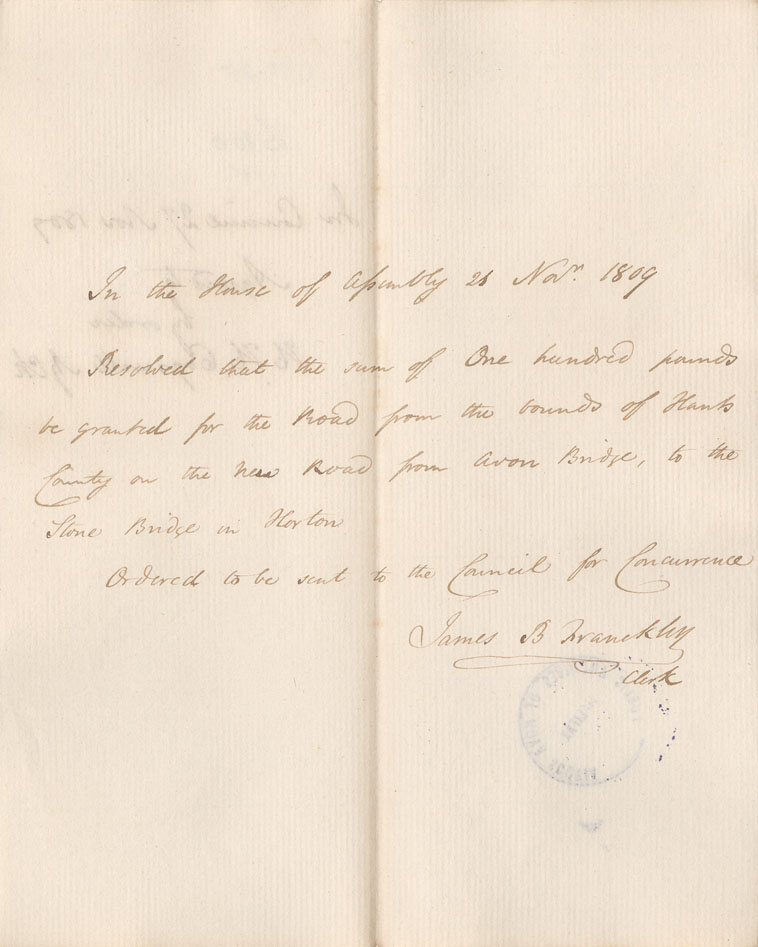 In the House of Assembly 21 Novr. 1809
Resolved that the sum of One hundred pounds
be granted for the Road from the bounds of Hants
County on the New Road from Avon Bridge, to the
Stone Bridge in Horton
Ordered to be sent to the Council for Concurrence
James B Franckley
Clerk